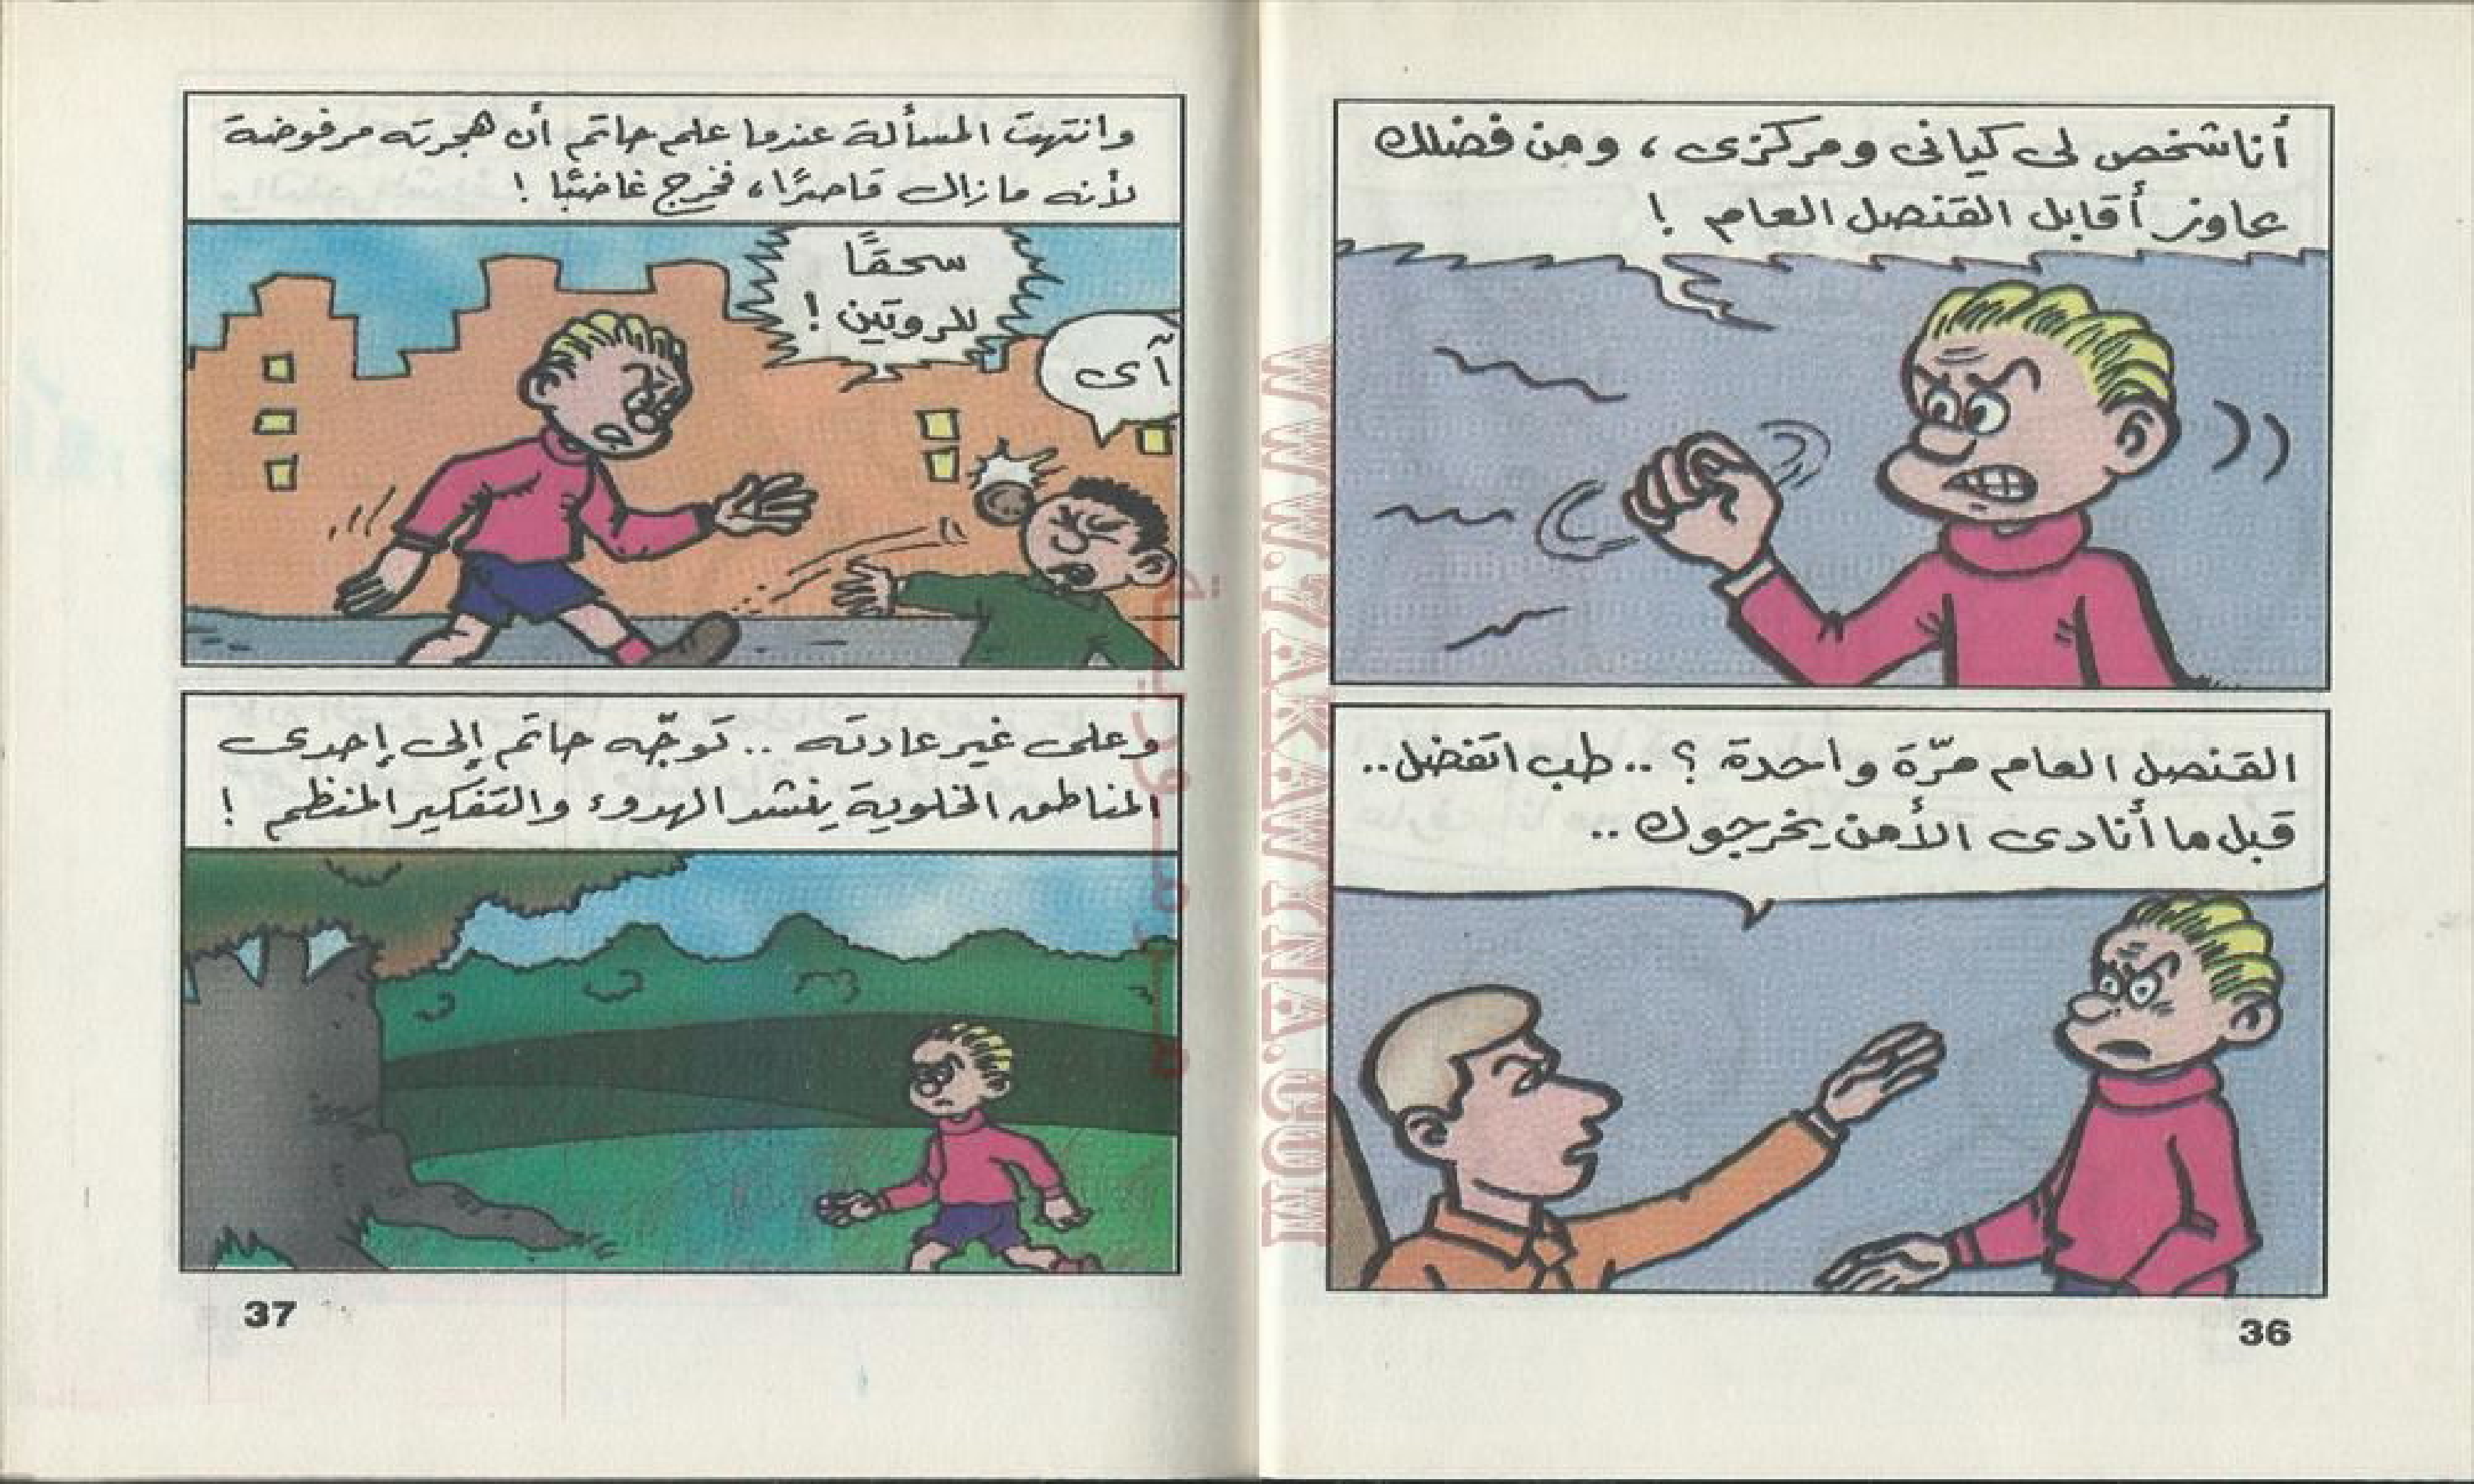 أنا شخص لى كيانى ومركزى ، ومن فضلك
عاوز أقابل القنصل العام !
القنصل العام مرّة واحدة ؟ .. طب اتفضل ..
قبل ما أنادى الأمن يخرجوك ..
36
وانتهت المسألة عندما علم حاتم أن هجرته مرفوضة
لأنه مازال قاصرًا ، فخرج غاضبًا !
سحقًا
للروتين !
آى
وعلى غير عادته .. توجّه حاتم إلى إحدى
المناطق الخلوية ينشد الهدوء والتفكير المنظم !
37